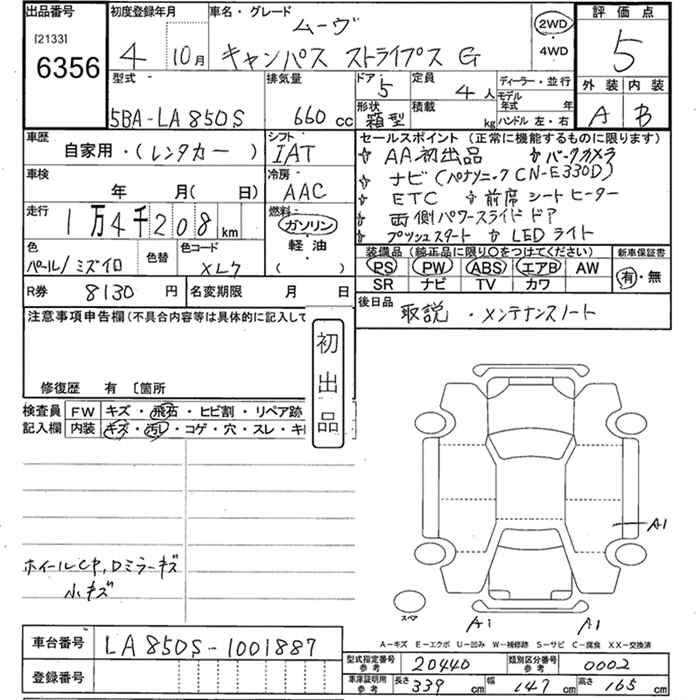 出品番号
[2133]
6356
初度登録年月
4 10月
車名・グレード
ムーヴ
キャンバス ストライプス G
2WD
・
4WD
評価点
5
外装 内装
A B
型式
5BA-LA850S
排気量
660 cc
ドア
5
定員
4人
ディーラー・並行
モデル年式 年
形状
箱型
積載
kg
ハンドル 左・右
車歴
自家用・(レンタカー)
シフト
IAT
車検
年 月( 日)
冷房
AAC
走行
1万4千208km
燃料
ガソリン
・
軽油
( )
色
パール/ミズイロ
色替
色コード
XL7
R券
8130 円
名変期限 月 日
セールスポイント(正常に機能するものに限ります)
☆ AA初出品 ☆ バックカメラ
☆ ナビ(パナソニック CN-E330D)
☆ ETC ☆ 前席シートヒーター
☆ 両側パワースライドドア
☆ プッシュスタート ☆ LEDライト
装備品(純正品に限り○をつけてください)
PS PW ABS エアB AW
SR ナビ TV カワ
新車保証書
有・無
後日品
取説・メンテナンスノート
注意事項申告欄(不具合内容等は具体的に記入して
修復歴 有 〔箇所
初出品
検査員
記入欄
FW キズ・飛石・ヒビ割・リペア跡
内装 キズ・汚レ・コゲ・穴・スレ・キ
ホイールCP,Dミラーキズ
小キズ
A1
スペア
A1 A1
A-キズ E-エクボ U-凹み W-補修跡 S-サビ C-腐食 XX-交換済
車台番号
LA850S-1001887
登録番号
型式指定番号 参考
20440
類別区分番号 参考
0002
車庫証明用 参考
長さ 339 cm 幅 147 cm 高さ 165 cm